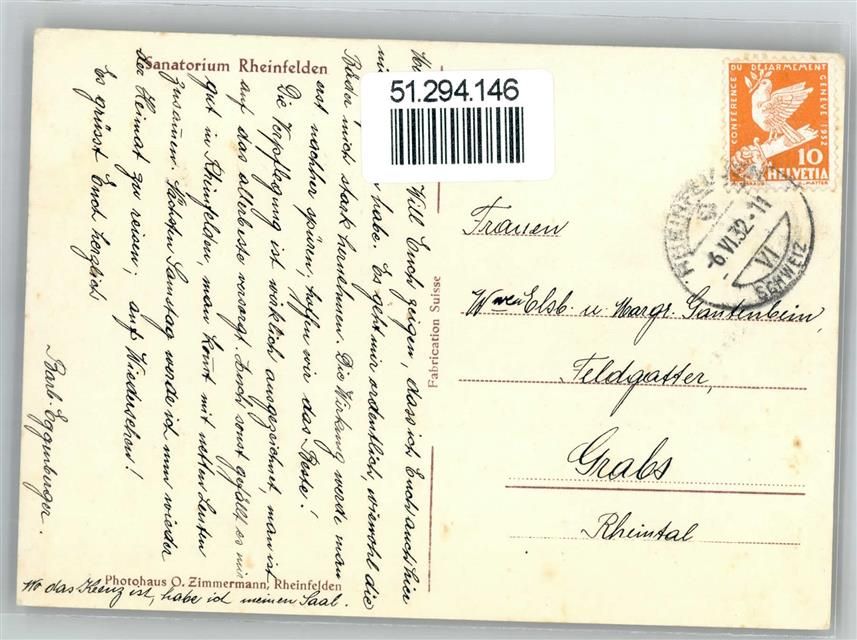 Sanatorium Rheinfelden
51.294.146
Will Euch zeigen, dass ich Euch auch hier
nicht habe. Es geht mir ordentlich, wiewohl die
Bäder mich stark hernehmen. Die Wirkung werde man
erst nachher spüren, hoffen wir das Beste!
Die Verpflegung ist wirklich ausgezeichnet, man ist
auf das allerbeste versorgt. Auch sonst gefällt es mir
gut in Rheinfelden, man kommt mit netten Leuten
zusammen. Nächsten Samstag werde ich nun wieder
der Heimat zu reisen; auf Wiedersehen!
Es grüsst Euch herzlich
Barb. Eggenberger.
Photohaus O. Zimmermann, Rheinfelden
Wo das Kreuz ist, habe ich meinen Saal.
Fabrication Suisse
CONFÉRENCE DU DÉSARMEMENT GENÈVE 1932
10
HELVETIA
RHEINFELDEN
-6.VI.32-11
VI
SCHWEIZ
Frauen
Wwen Elsb. u. Margr. Gantenbein,
Feldgatter,
Grabs
Rheintal